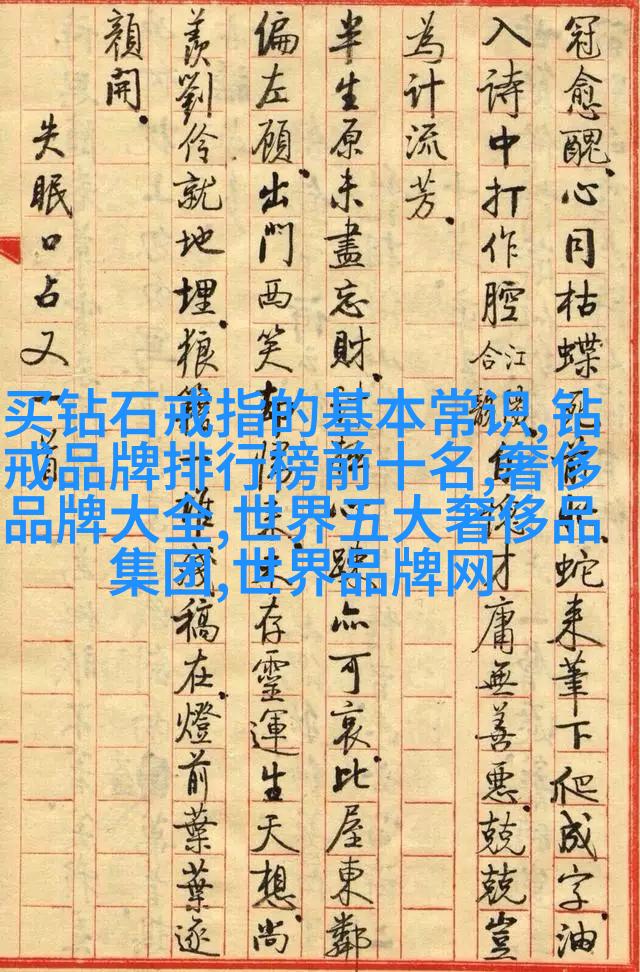 冠愈醜。心同枯蝶死 蛇来筆下爬成字。油
入詩中打作腔。江陽合韻 自 才庸無善惡。兢兢豈
為計流芳。
半生原未盡忘財。 心疎亦可哀。比屋東鄰
偏左顧。出門西笑却歸来。未存靈運生天想。尚
羡劉伶就地埋。狼籍一堆殘稿在。燈前葉葉逐
顏開。
失眠口占又一首
买钻石戒指的基本常识,钻
戒品牌排行榜前十名,奢侈
品牌大全,世界五大奢侈品
集团,世界品牌网